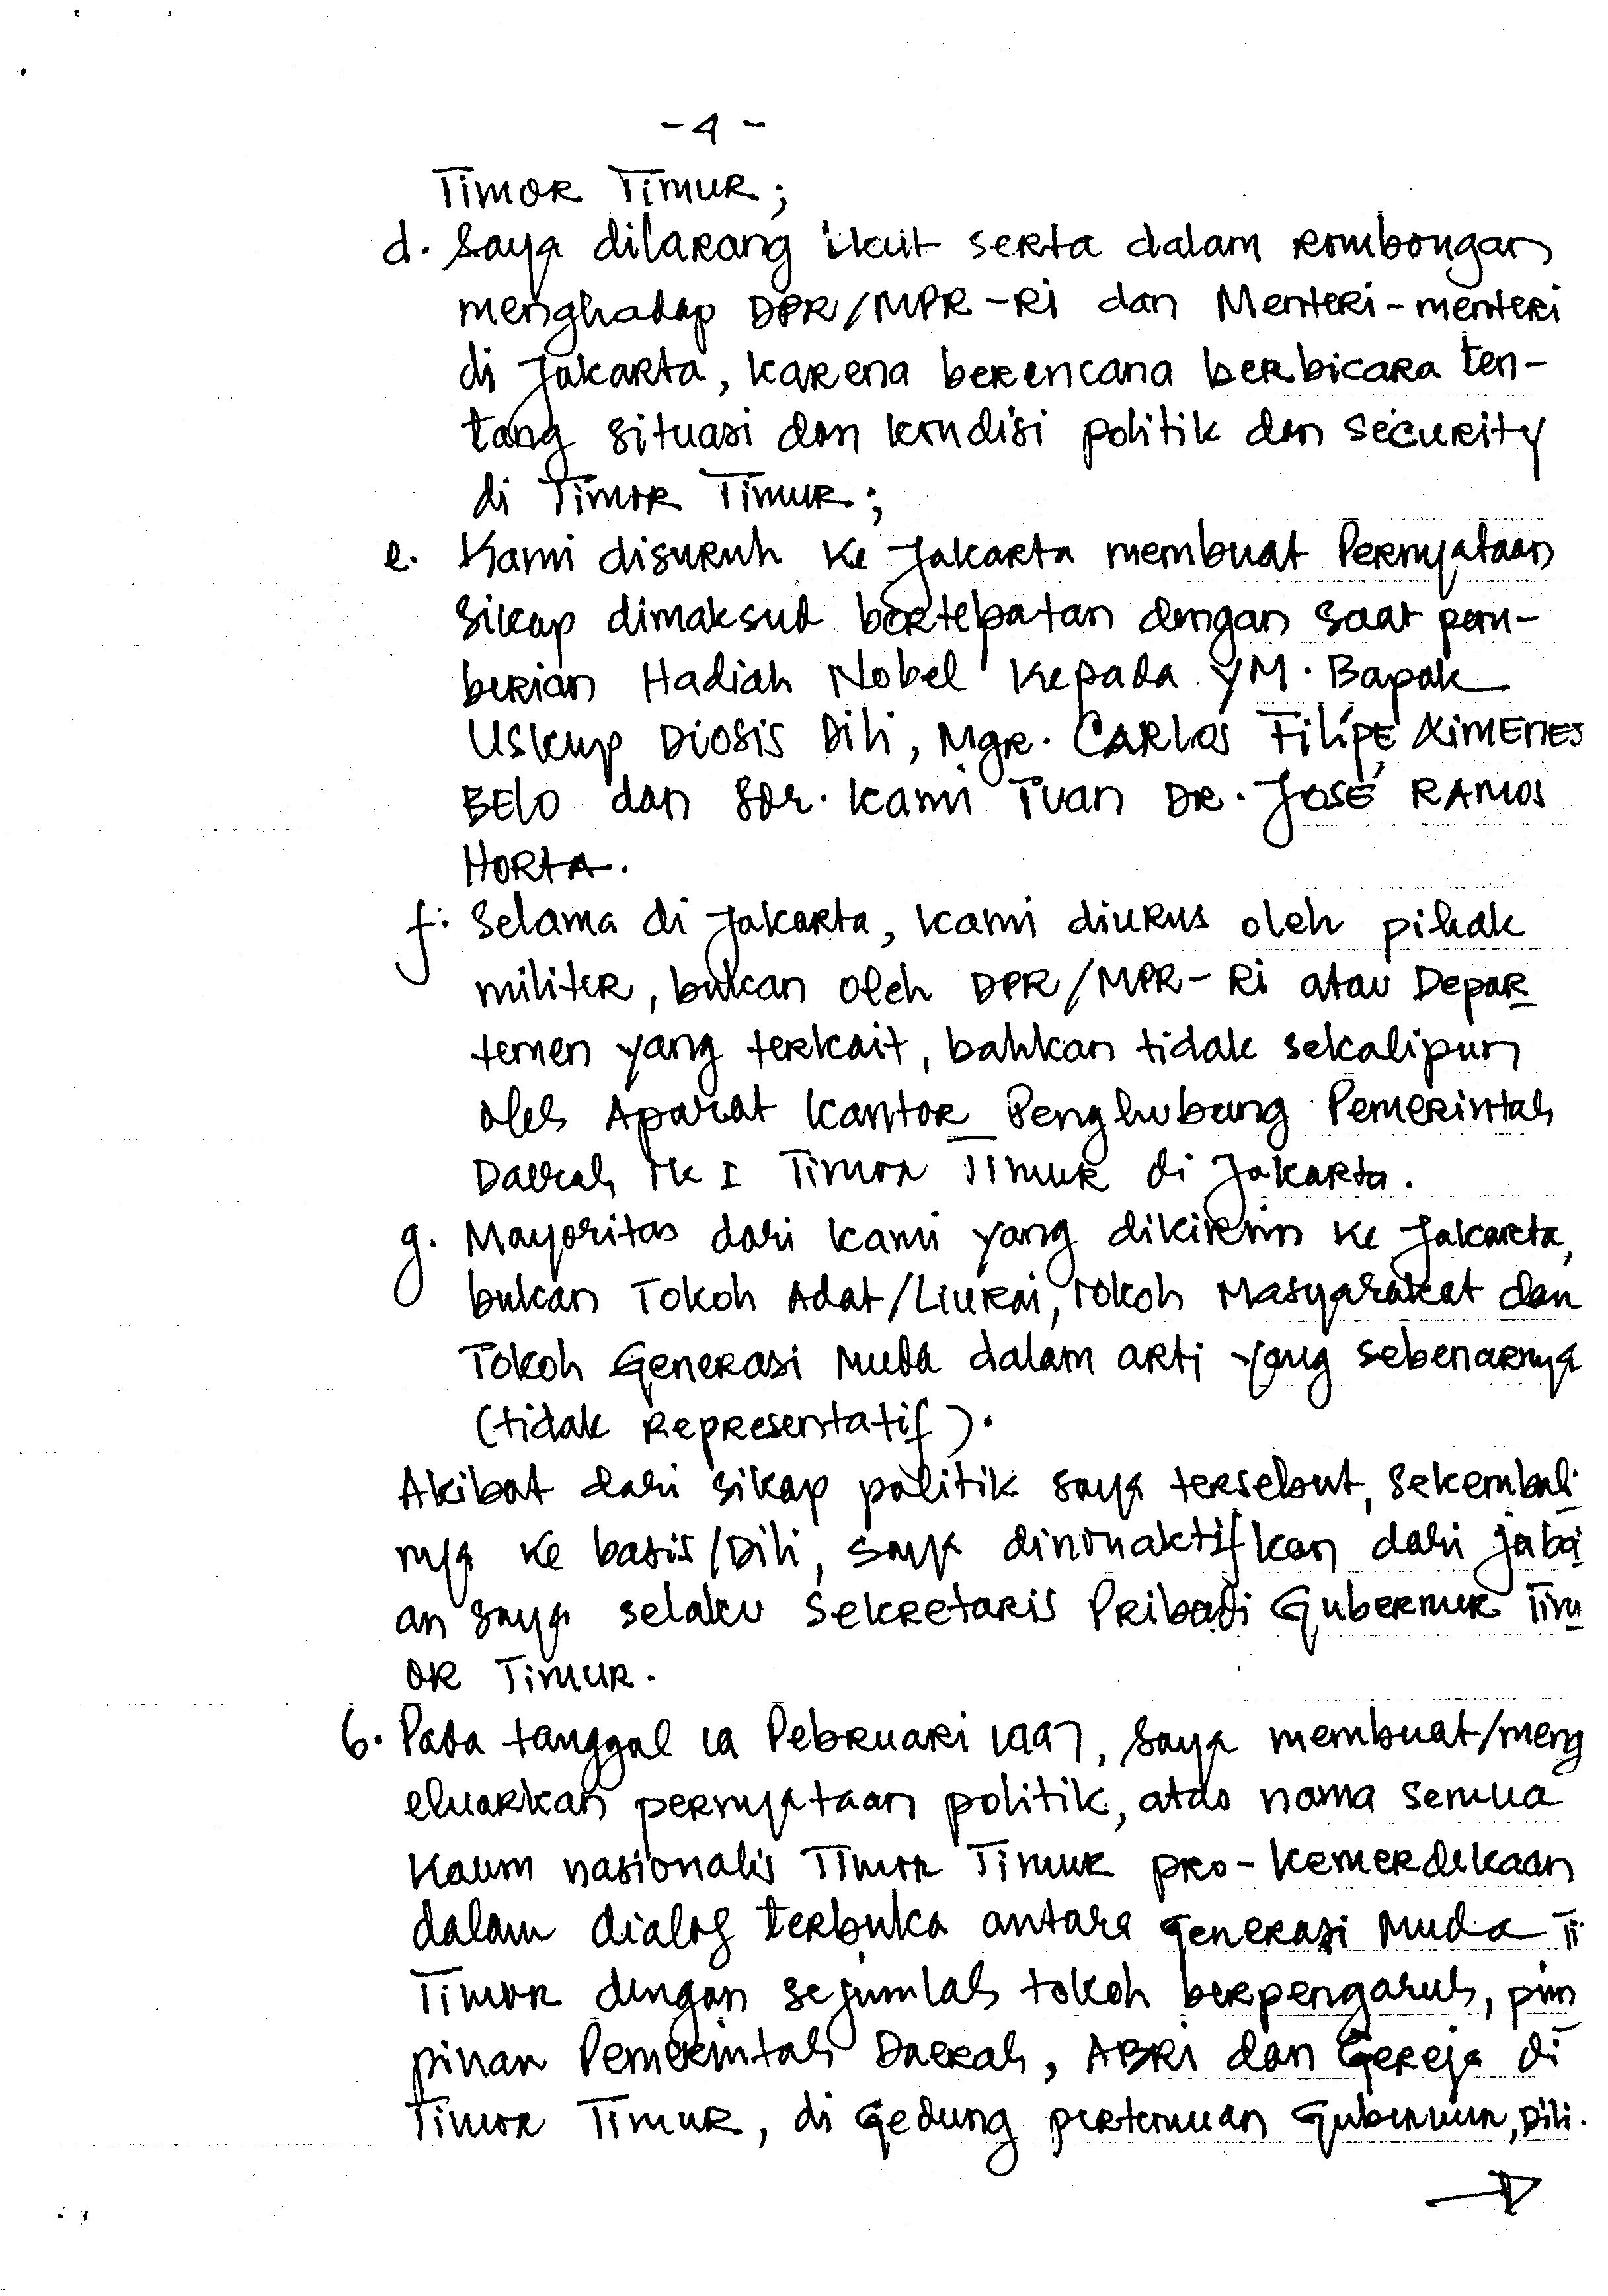 - 4 -
Timor Timur;
d. Saya dilarang ikut serta dalam rombongan
menghadap DPR/MPR-RI dan Menteri-menteri
di Jakarta, karena berencana berbicara ten-
tang situasi dan kondisi politik dan security
di Timor Timur;
e. Kami disuruh ke Jakarta membuat Pernyataan
sikap dimaksud bertepatan dengan saat pem-
berian Hadiah Nobel kepada YM. Bapak
Uskup Diosis Dili, Mgr. CARLOS FILIPE XIMENES
BELO dan Sdr. kami Tuan DR. JOSÉ RAMOS
HORTA.
f. Selama di Jakarta, kami diurus oleh pihak
militer, bukan oleh DPR/MPR-RI atau Depar
temen yang terkait, bahkan tidak sekalipun
oleh Aparat Kantor Penghubung Pemerintah
Daerah Tk I Timor Timur di Jakarta.
g. Mayoritas dari kami yang dikirim ke Jakarta,
bukan Tokoh Adat/Liurai, Tokoh Masyarakat dan
Tokoh Generasi Muda dalam arti yang sebenarnya
(tidak Representatif).
Akibat dari sikap politik saya tersebut, sekembali
nya ke basis/Dili, saya dinonaktifkan dari jaba
an saya selaku Sekretaris Pribadi Gubernur Tim
or Timur.
6. Pada tanggal 19 Pebruari 1997, saya membuat/meng
eluarkan pernyataan politik, atas nama semua
kaum nasionalis Timor Timur pro-kemerdekaan
dalam dialog terbuka antara Generasi Muda Ti
Timor dengan sejumlah tokoh berpengaruh, pim
pinan Pemerintah Daerah, ABRI dan Gereja di
Timor Timur, di Gedung pertemuan Gubernur, Dili.